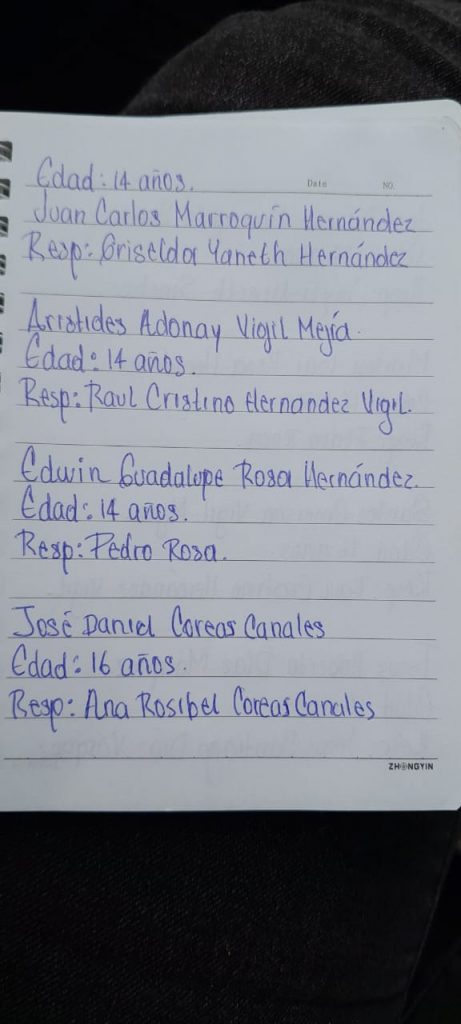 Date NO.
Edad: 14 años.
Juan Carlos Marroquín Hernández
Resp: Griselda Yaneth Hernández
Aristides Adonay Vigil Mejía.
Edad: 14 años.
Resp: Raul Cristino Hernandez Vigil.
Edwin Guadalupe Rosa Hernández.
Edad: 14 años.
Resp: Pedro Rosa.
José Daniel Coreas Canales
Edad: 16 años.
Resp: Ana Rosibel Coreas Canales
ZHONGYIN